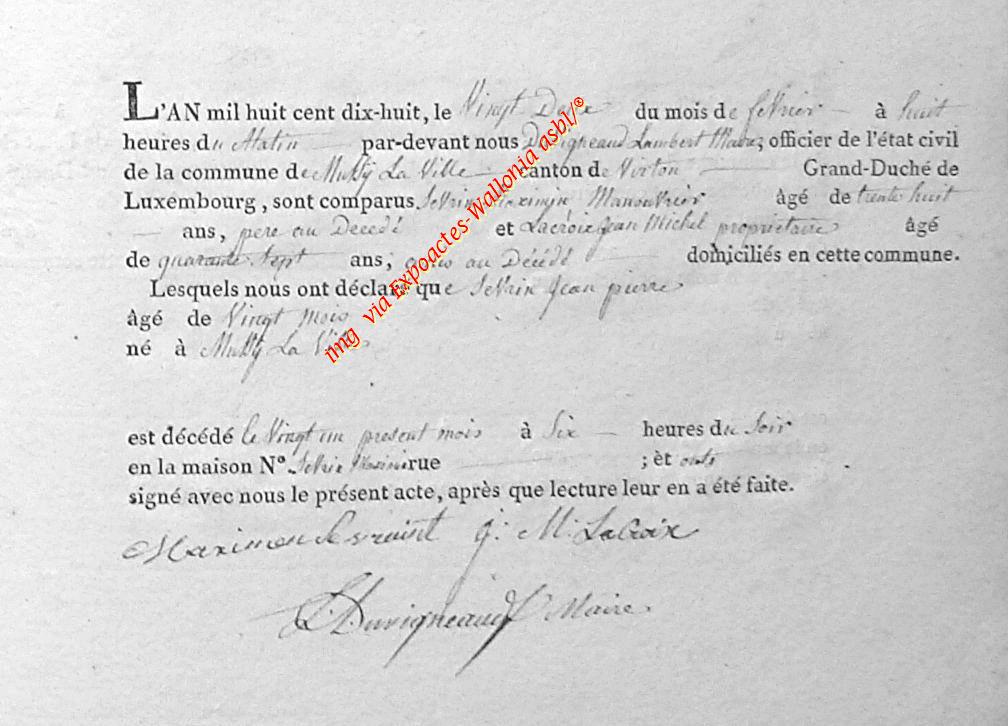 L'AN mil huit cent dix-huit, le Vingt Deux du mois de fevrier à huit
heures du Matin par-devant nous Duvigneaud Lambert Maire, officier de l'état civil
de la commune de Mussy La Ville canton de Virton Grand-Duché de
Luxembourg, sont comparus Sevrin Maximin Manouvrier âgé de trente huit
ans, pere au Decedé et Lacroix Jean Michel propriétaire âgé
de quarante sept ans, au Décédé domiciliés en cette commune.
Lesquels nous ont déclaré que Sevrin Jean pierre
âgé de Vingt mois
né à Mussy La Ville
est décédé le Vingt un present mois à Six heures du Soir
en la maison N° Sevrin rue ; et ont
signé avec nous le présent acte, après que lecture leur en a été faite.
J. M. LaCroix
L. Duvigneaud Maire
img via Expoactes-Wallonia asbl/®